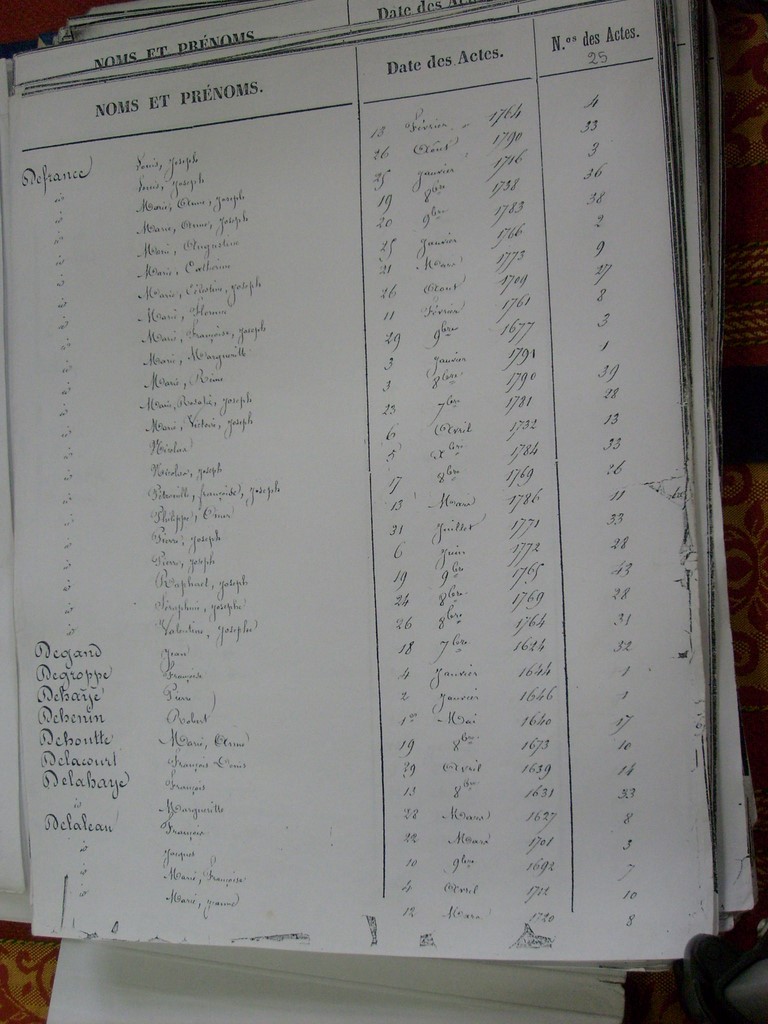 NOMS ET PRÉNOMS. Date des Actes.
NOMS ET PRÉNOMS. Date des Actes. N.os des Actes.
25
Defrance Louis, Joseph 13 Février 1764 4
id Louis, Joseph 26 Aout 1790 33
id Marie, Anne, Joseph 25 Janvier 1746 3
id Marie, Anne, Joseph 19 8bre 1738 36
id Marie, Augustine 20 9bre 1783 38
id Marie, Catherine 25 Janvier 1766 2
id Marie, Célestine, Joseph 21 Mars 1773 9
id Marie, Florence 26 Aout 1709 27
id Marie, Françoise, Joseph 11 Février 1761 8
id Marie, Marguerite 29 9bre 1677 3
id Marie, Reine 3 Janvier 1791 1
id Marie, Rosalie, Joseph 3 8bre 1790 39
id Marie, Victoire, Joseph 23 7bre 1781 28
id Nicolas 6 Avril 1732 13
id Nicolas, Joseph 5 xbre 1784 33
id Petronille, françoise, Joseph 17 8bre 1769 26
id Philippe, Omer 13 Mars 1786 11
id Pierre, Joseph 31 Juillet 1771 33
id Pierre, Joseph 6 Juin 1772 28
id Raphael, Joseph 19 9bre 1765 43
id Séraphin, Josephe 24 8bre 1769 28
id Valentine, Josephe 26 8bre 1764 31
Degand Jean 18 7bre 1624 32
Degroppe Françoise 4 Janvier 1644 1
Dehaye Pierre 2 Janvier 1646 1
Dehenin Robert 1er Mai 1640 17
Dehoutte Marie, Anne 19 8bre 1673 10
Delacourt François Louis 29 Avril 1639 14
Delahaye François 13 8bre 1631 33
id Marguerite 28 Mars 1627 8
Delaleau François 22 Mars 1701 3
id Jacques 10 9bre 1692 7
id Marie, Françoise 4 Avril 1712 10
id Marie, Jeanne 12 Mars 1720 8